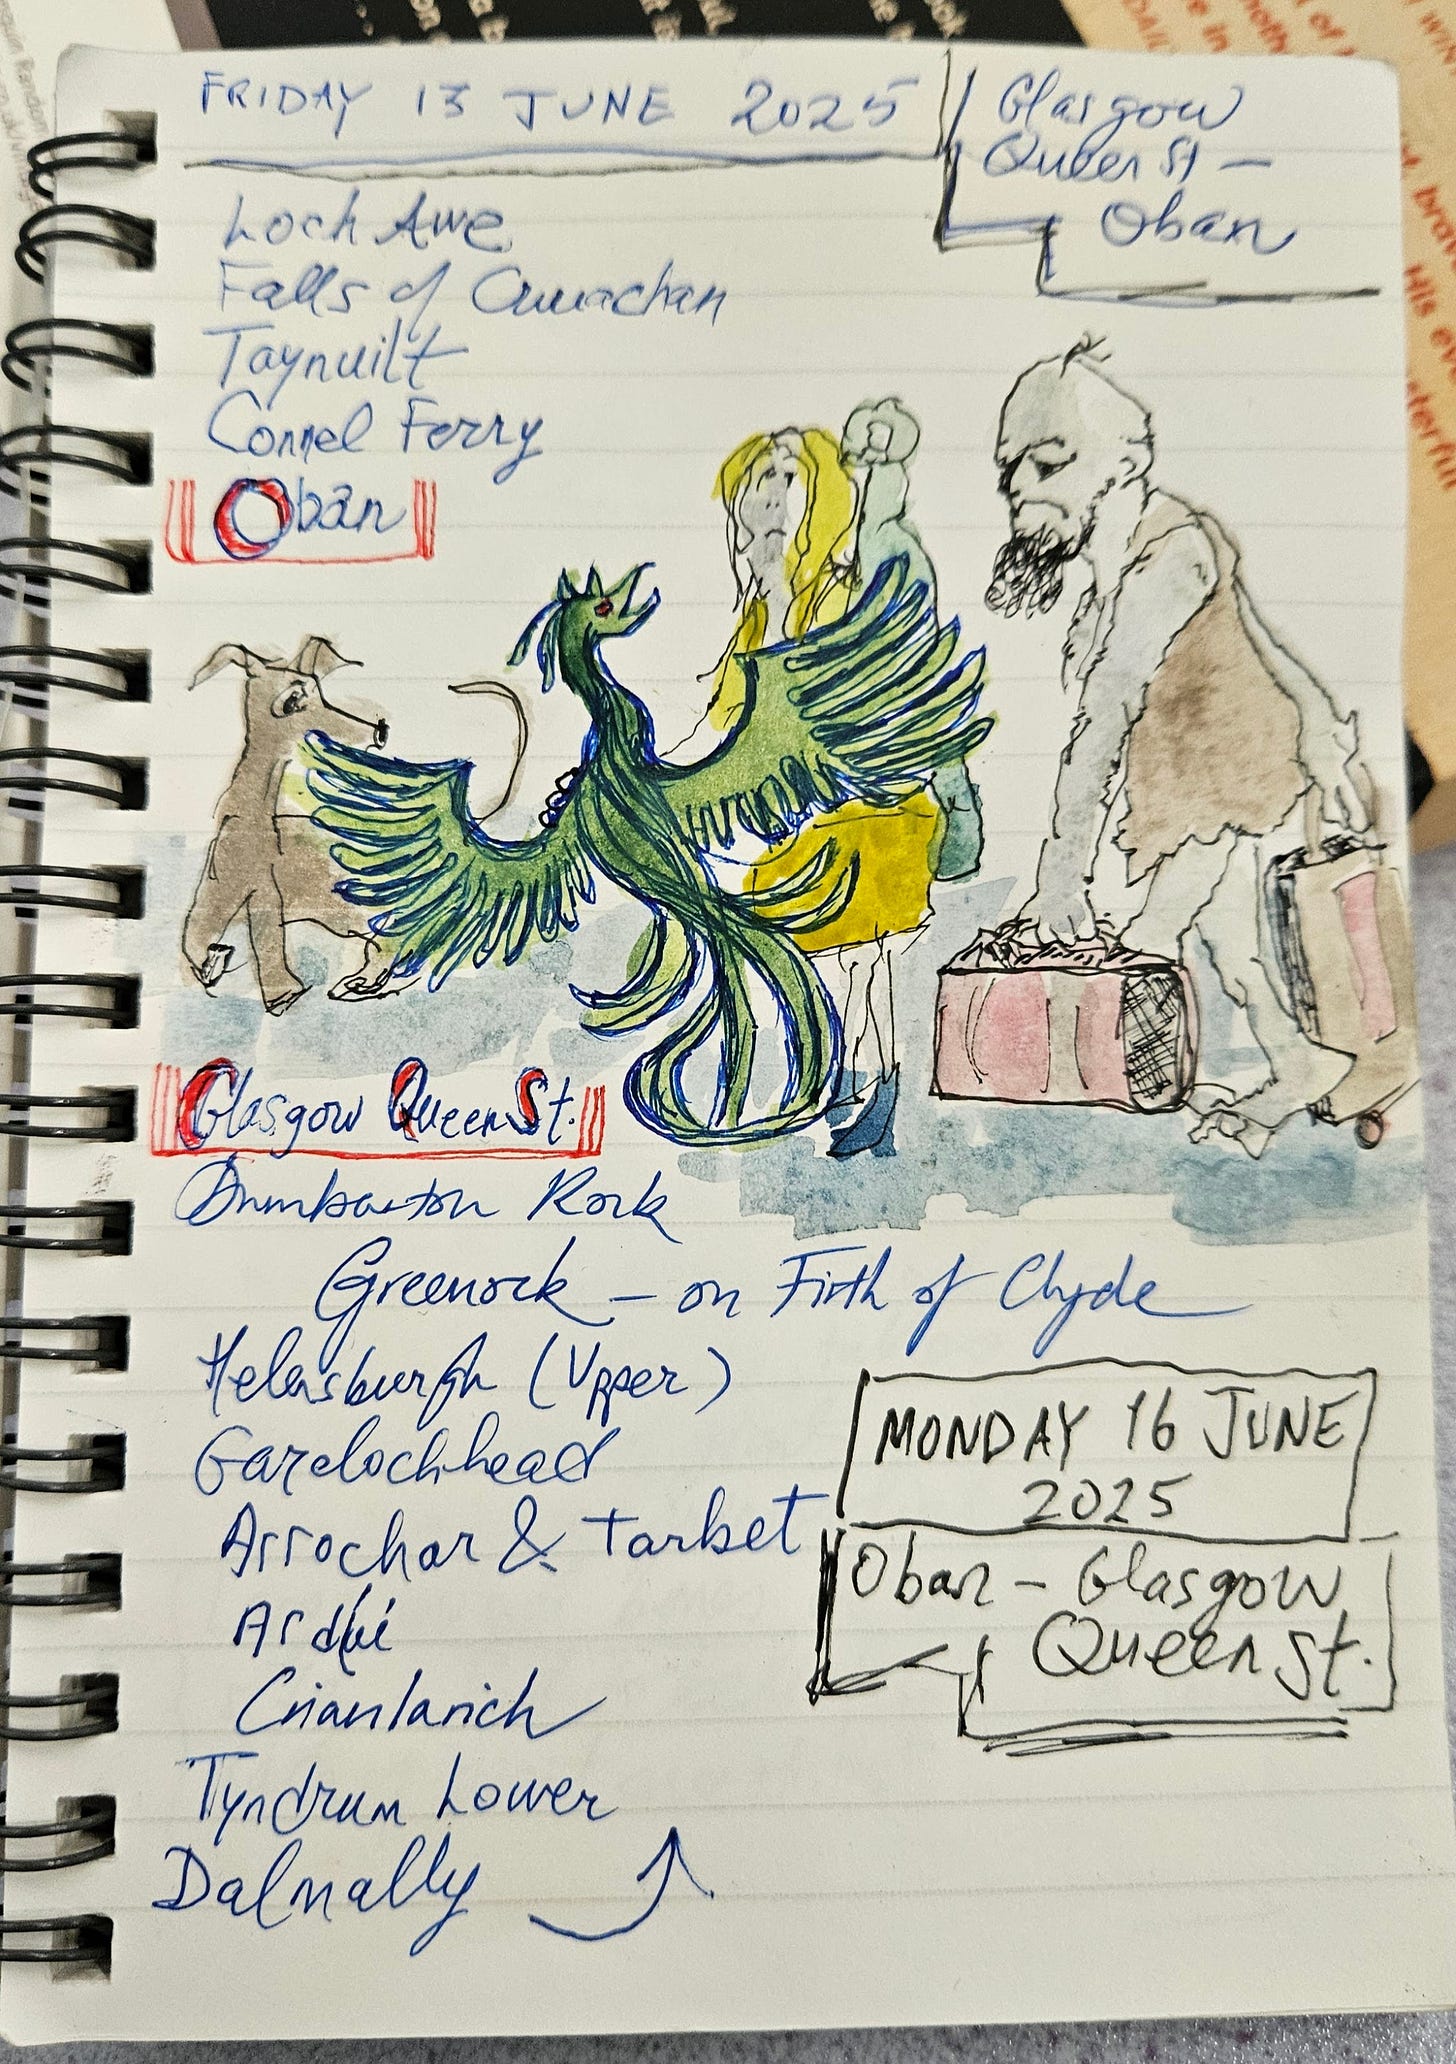 FRIDAY 13 JUNE 2025
Glasgow
Queen St –
Oban
Loch Awe
Falls of Cruachan
Taynuilt
Connel Ferry
Oban
Glasgow Queen St.
Dumbarton Rock
Greenock – on Firth of Clyde
Helensburgh (Upper)
Garelochhead
Arrochar & Tarbet
Ardlui
Crianlarich
Tyndrum Lower
Dalmally
MONDAY 16 JUNE
2025
Oban – Glasgow
Queen St.